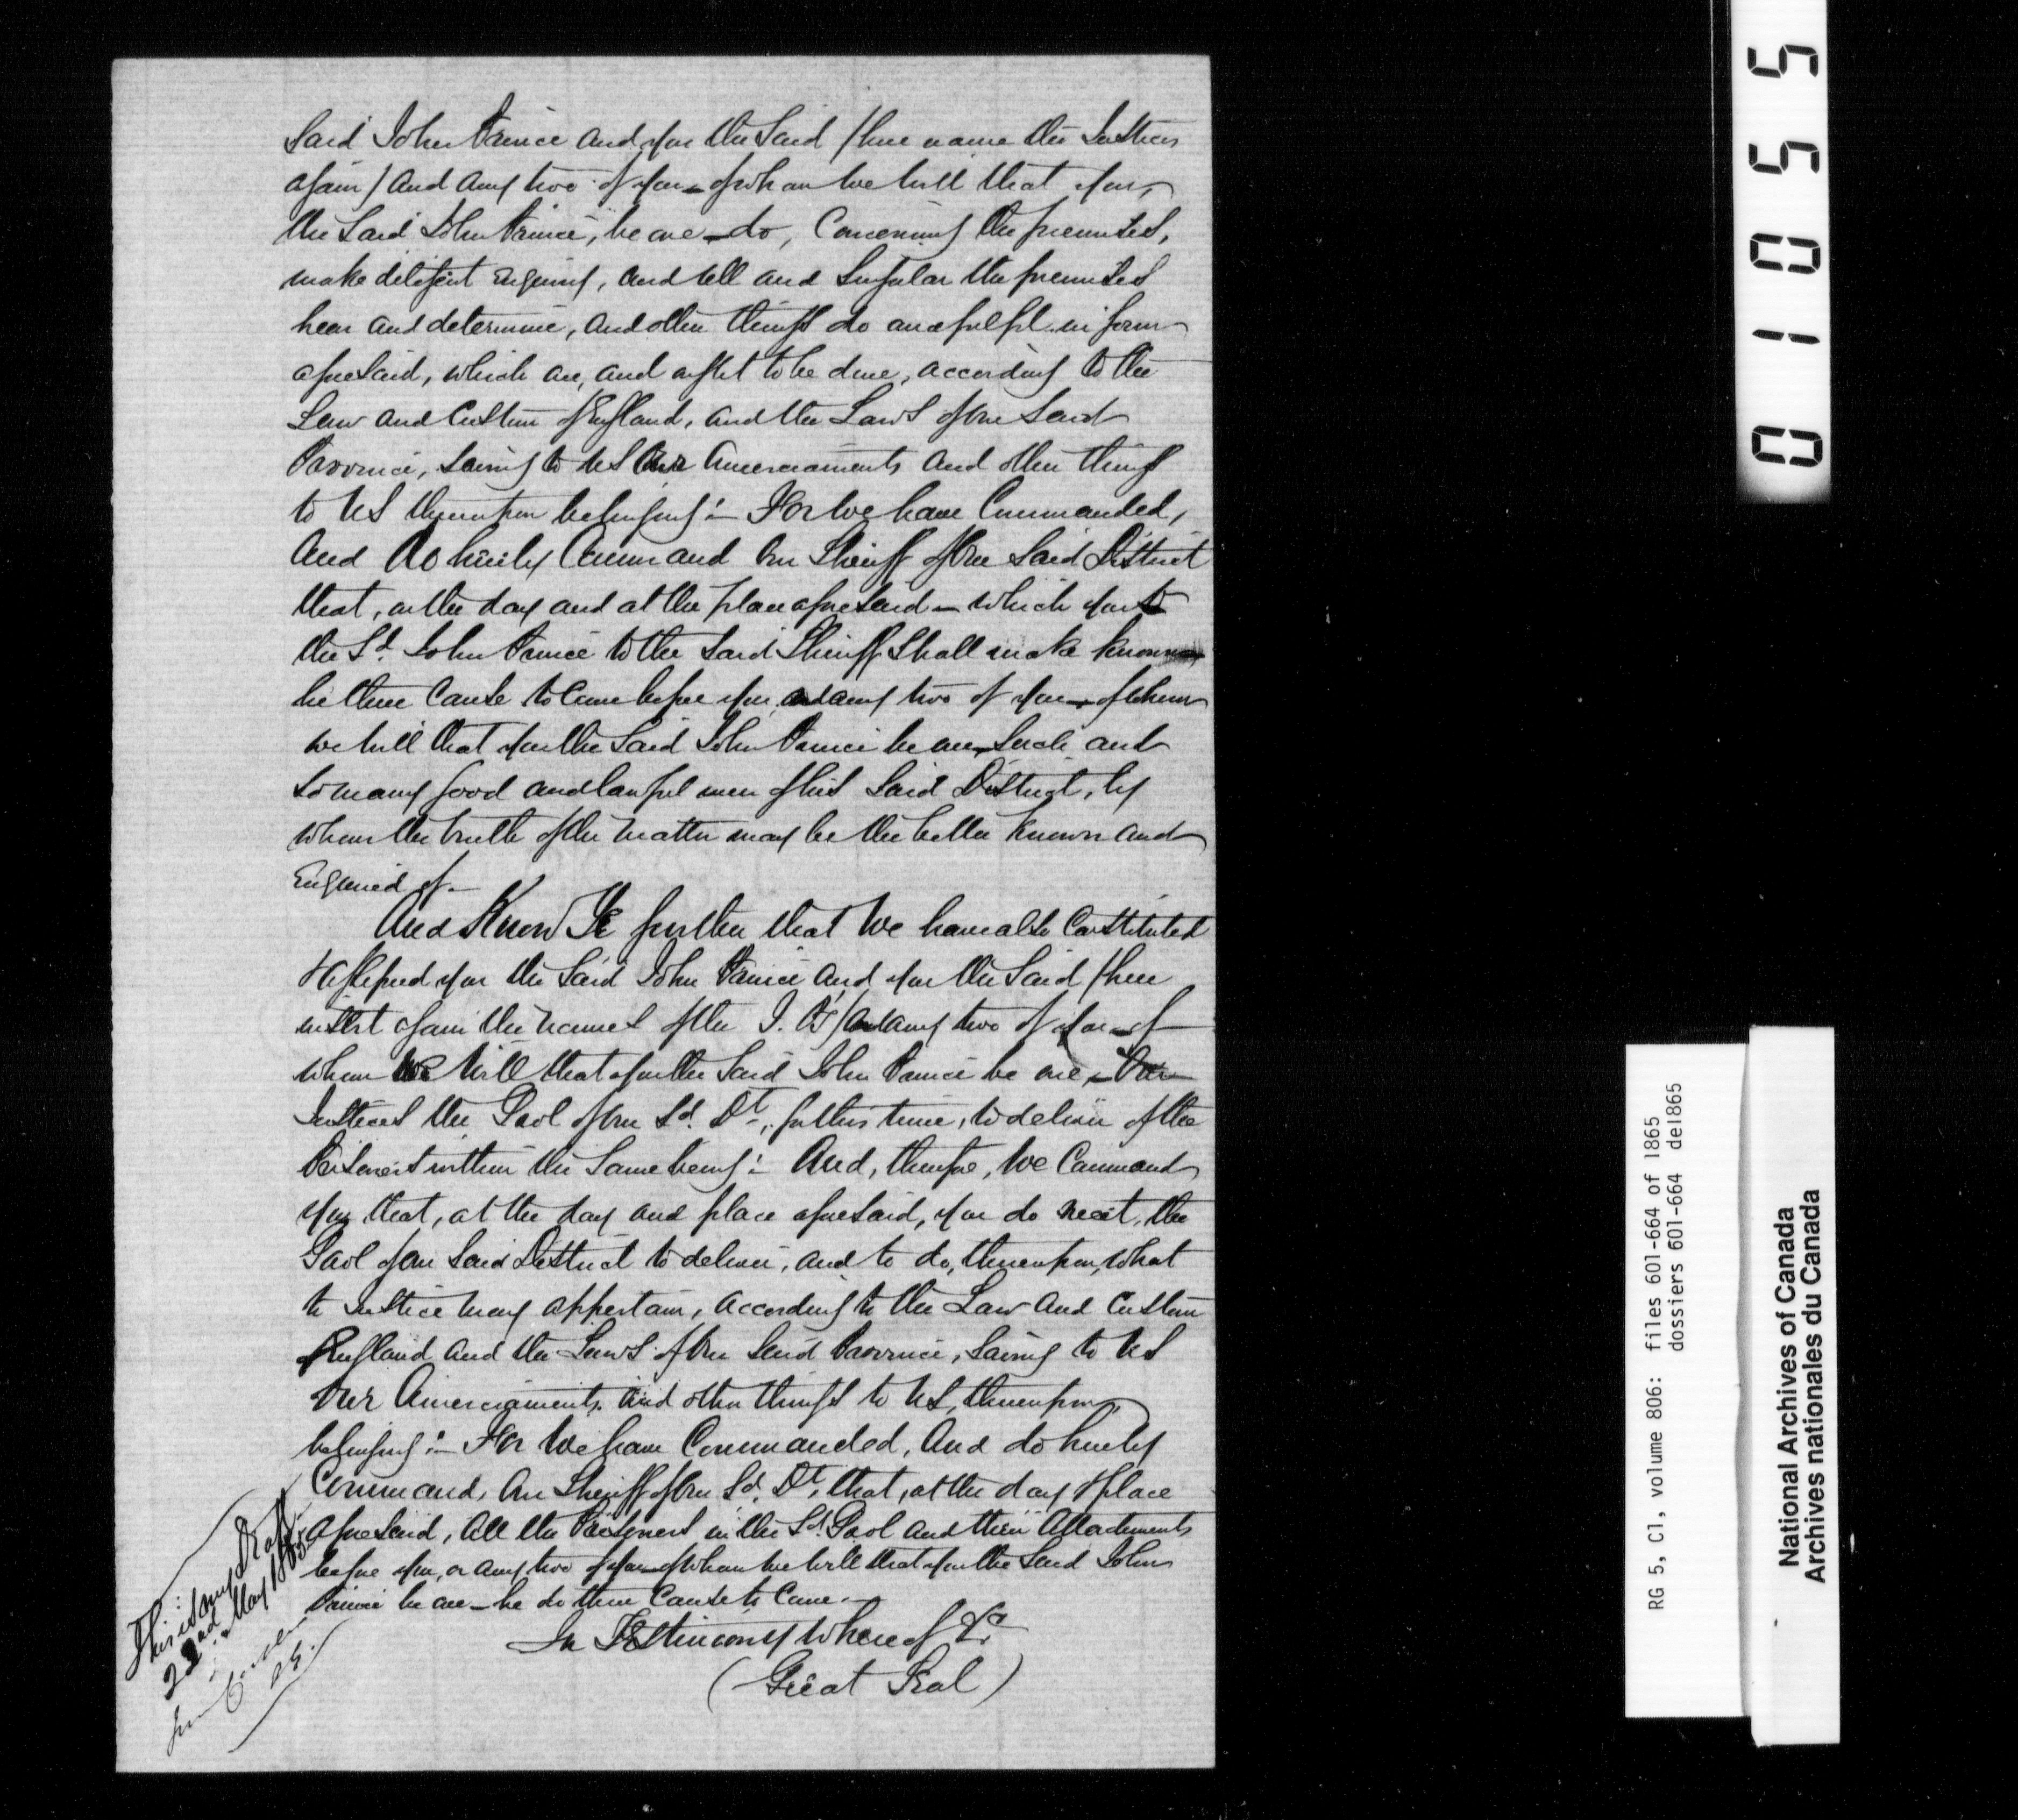 Said John Prince and you the Said / here name the Justices
again / and any two of you – of whom We will that you,
the Said John Prince, be one – do, Concerning the premises,
make diligent Enquiry, and all and Singular the premises
hear and determine, and other things do and fulfil in form
aforesaid, which are, and ought to be done, according to the
Law and Custom of England, and the Laws of our Said
Province, Saving to Us Our Amerciaments and other things
to Us thereupon belonging :– For We have Commanded,
And do hereby Command our Sheriff of Our Said District
that, on the day and at the place aforesaid – which you
the Sd. John Prince to the Said Sheriff Shall make known
he there Cause to Come before you, and any two of you – of whom
we will that you the Said John Prince be one, Such and
So many good and lawful men of his Said District, by
whom the truth of the matter may be the better known and
Enquired of. –
And Know Ye further that We have also Constituted
& assigned you the Said John Prince and you the Said / here
insert again the names of the J. Ps / and any two of you – of
whom We Will that you the Said John Prince be one, – Our
Justices the Gaol of our Sd. Dt., for this time, to deliver of the
Prisoners within the Same being : And, therefore, We Command
you that, at the day and place aforesaid, you do meet, the
Gaol of our Said District to deliver, and to do, thereupon, what
to Justice may appertain, according to the Law and Custom
of England and the Laws of Our Said Province, Saving to Us
Our Amerciaments and other things to Us, thereupon,
belonging :– For We have Commanded, And do hereby
Command, Our Sheriff of Our Sd. Dt., that, at the day & place
aforesaid, All the Prisoners in the Sd. Gaol and their Attachments
before you, or any two of you – of whom we will that you the Said John
Prince be one – he do there Cause to Come. –
In Testimony Whereof &c
(Great Seal)
This is my Draft
22nd May 1865
01055
RG 5, C1, volume 806: files 601-664 of 1865
dossiers 601-664 de1865
National Archives of Canada
Archives nationales du Canada